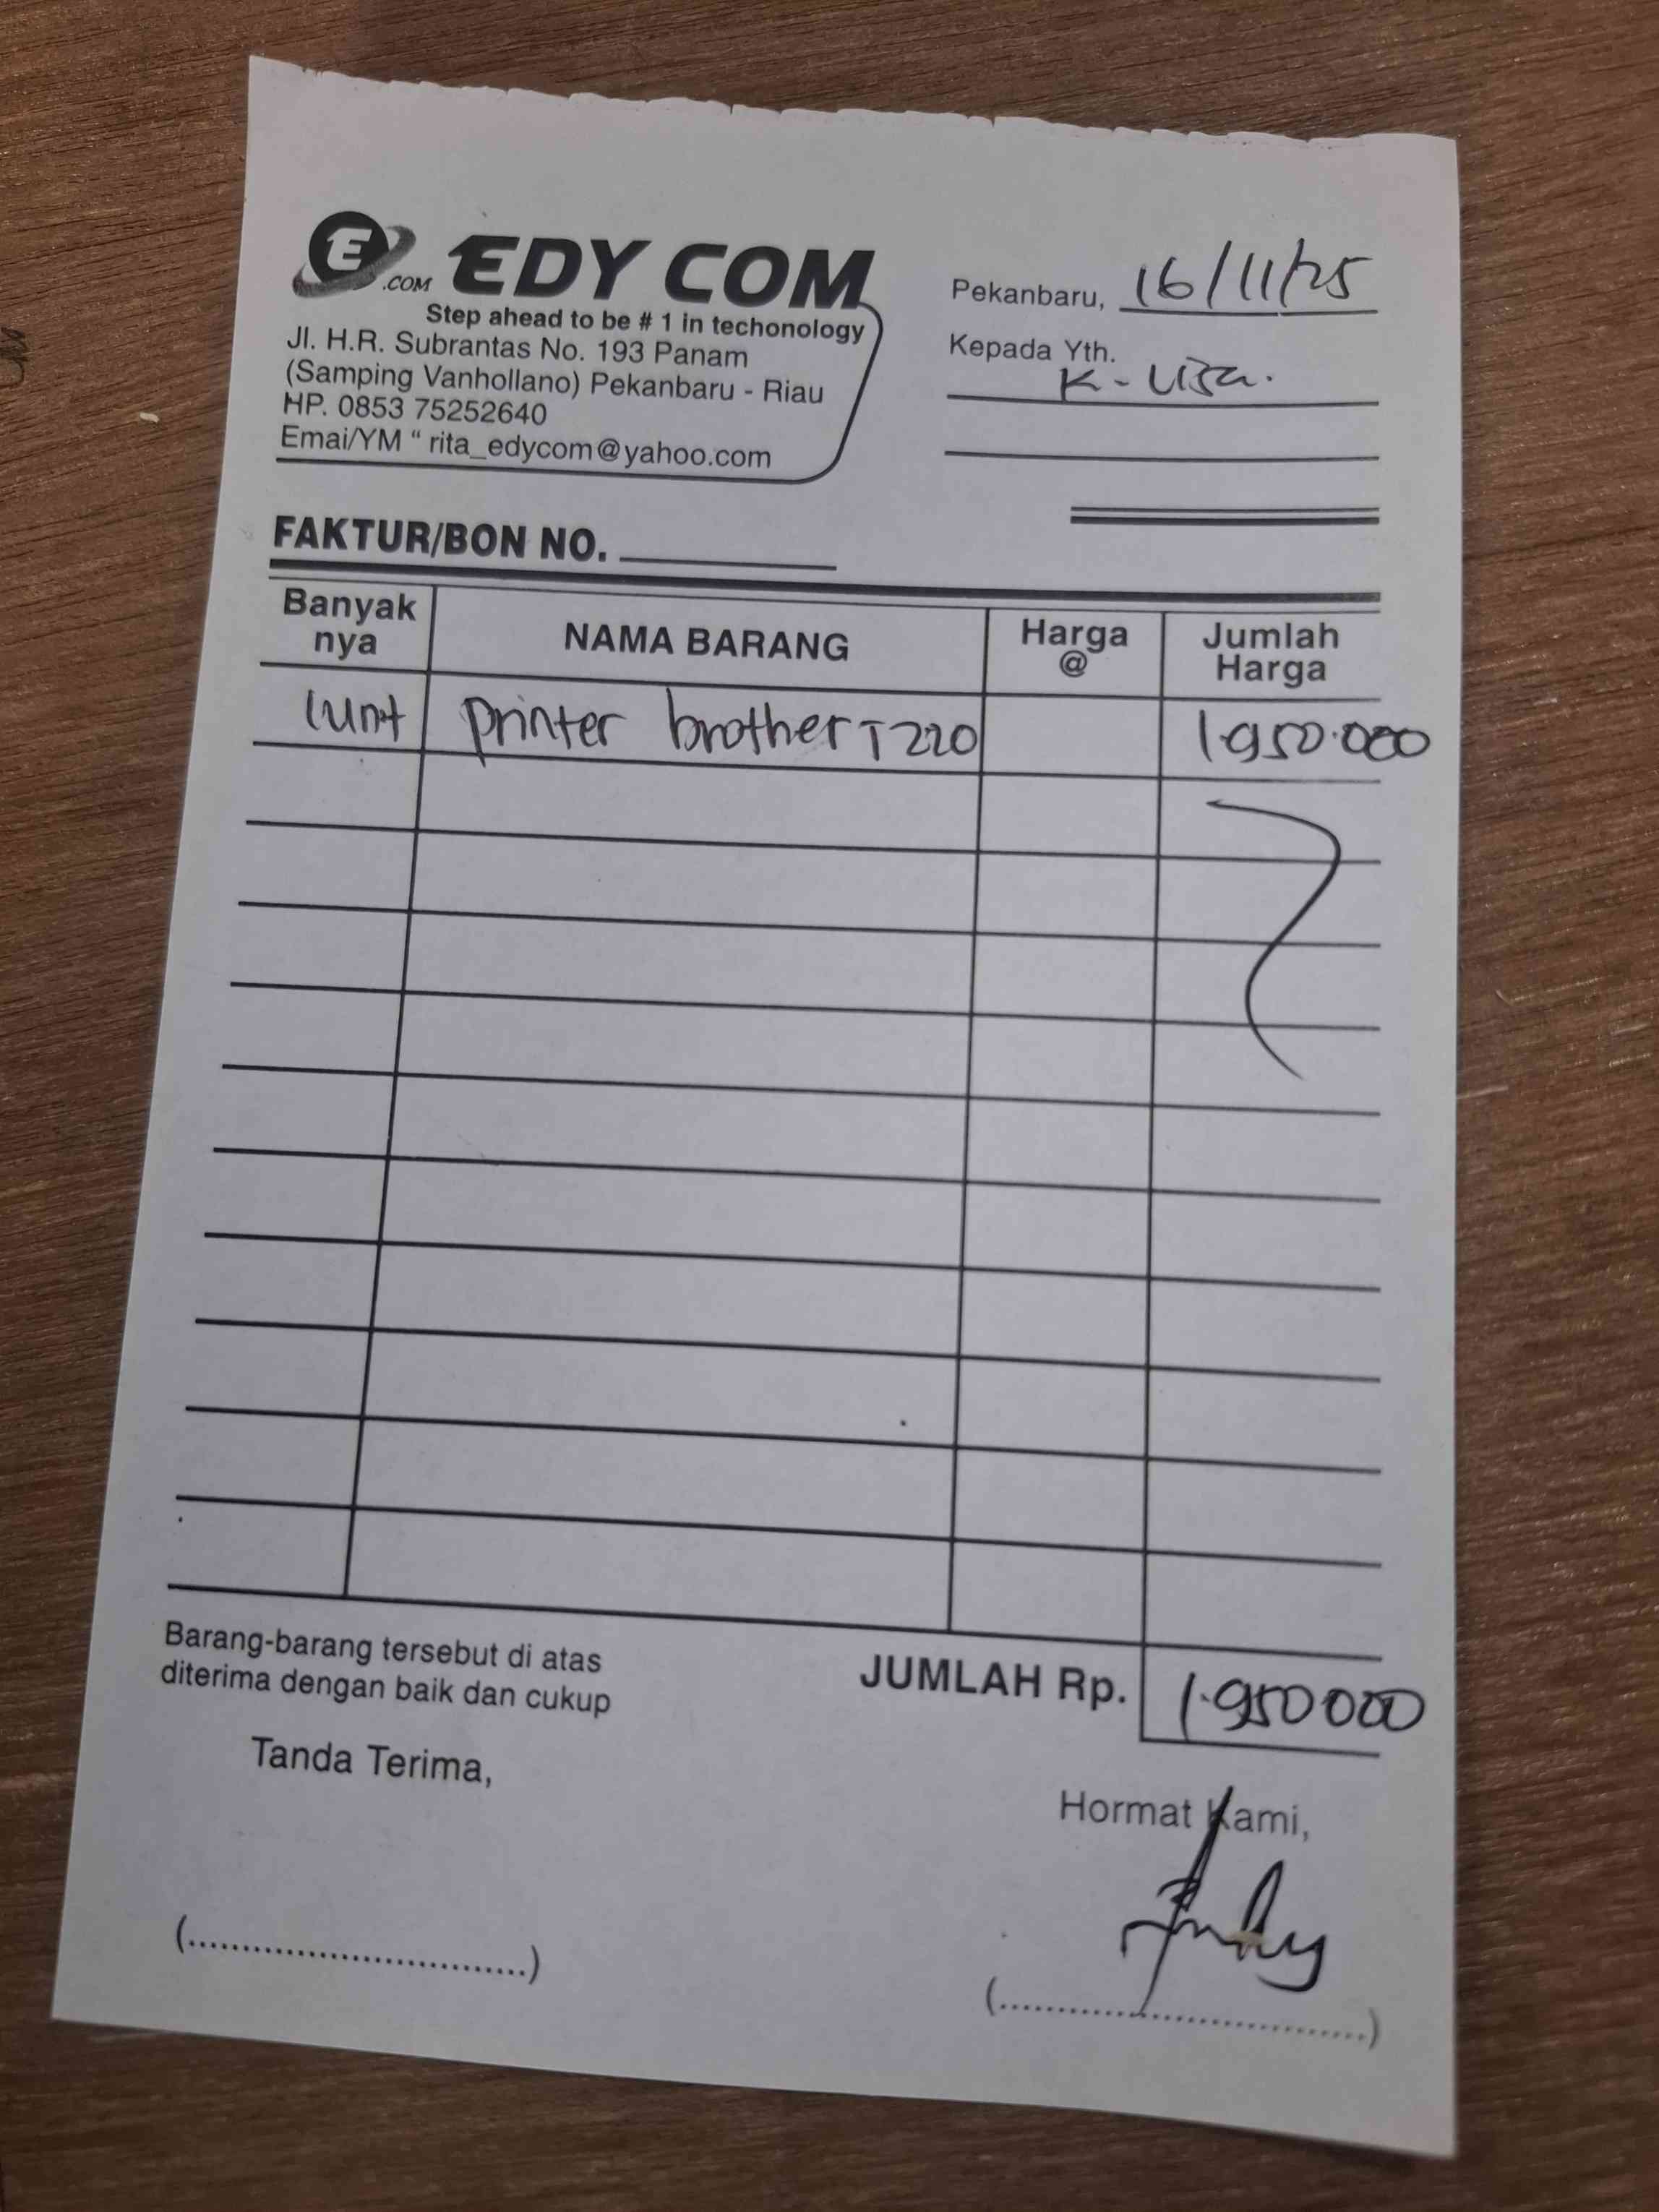 E .COM EDY COM
Step ahead to be # 1 in techonology
Jl. H.R. Subrantas No. 193 Panam
(Samping Vanhollano) Pekanbaru - Riau
HP. 0853 75252640
Emai/YM “ rita_edycom@yahoo.com
Pekanbaru, 16/11/25
Kepada Yth.
K-
FAKTUR/BON NO.
Banyak nya NAMA BARANG Harga @ Jumlah Harga
1unt printer brother T220 1.950.000
Barang-barang tersebut di atas
diterima dengan baik dan cukup
JUMLAH Rp. 1.950000
Tanda Terima,
Hormat Kami,
(..............................)
(..............................)